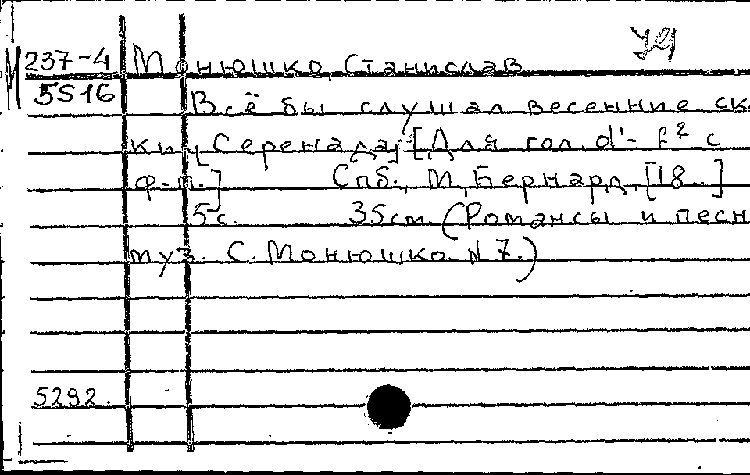 М 237-4 Монюшко, Станислав
5516 Всё бы слушал весенние ск
ки, [Серенада] [Для гол. d'- f² с
ф-п.] Спб., М. Бернард, [18..]
5 с. 35см (Романсы и песн
муз. С. Монюшко. N 7.)
5292.